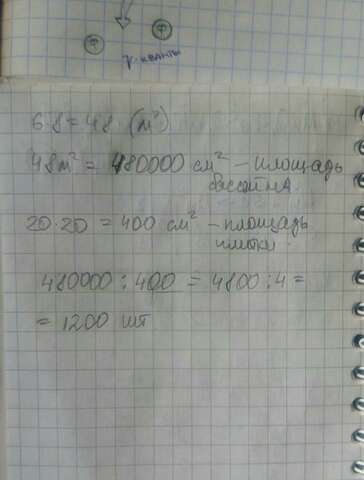 γ-кванты
6·8=48 (м²)
48м² = 480000 см² – площадь
бассейна
20·20 = 400 см² – площадь
плитки
480000 : 400 = 4800 : 4 =
= 1200 шт